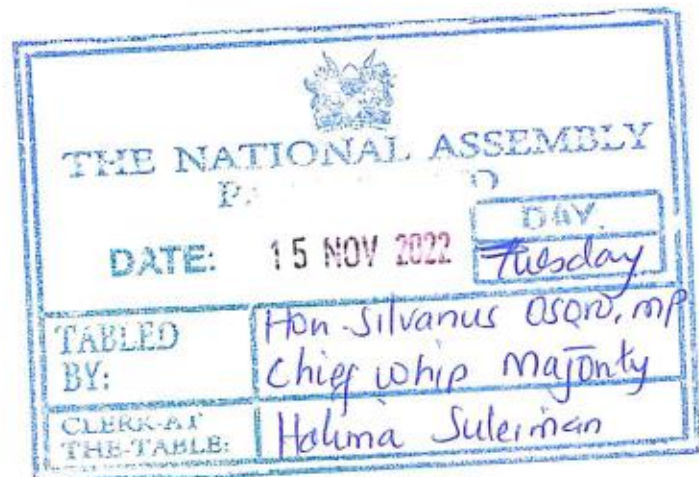 THE NATIONAL ASSEMBLY
DATE: 15 NOV 2022
DAY.
Tuesday
TABLED BY:
Hon. Silvanus Osoro, MP
Chief Whip Majority
CLERK-AT THE-TABLE:
Halima Suleiman